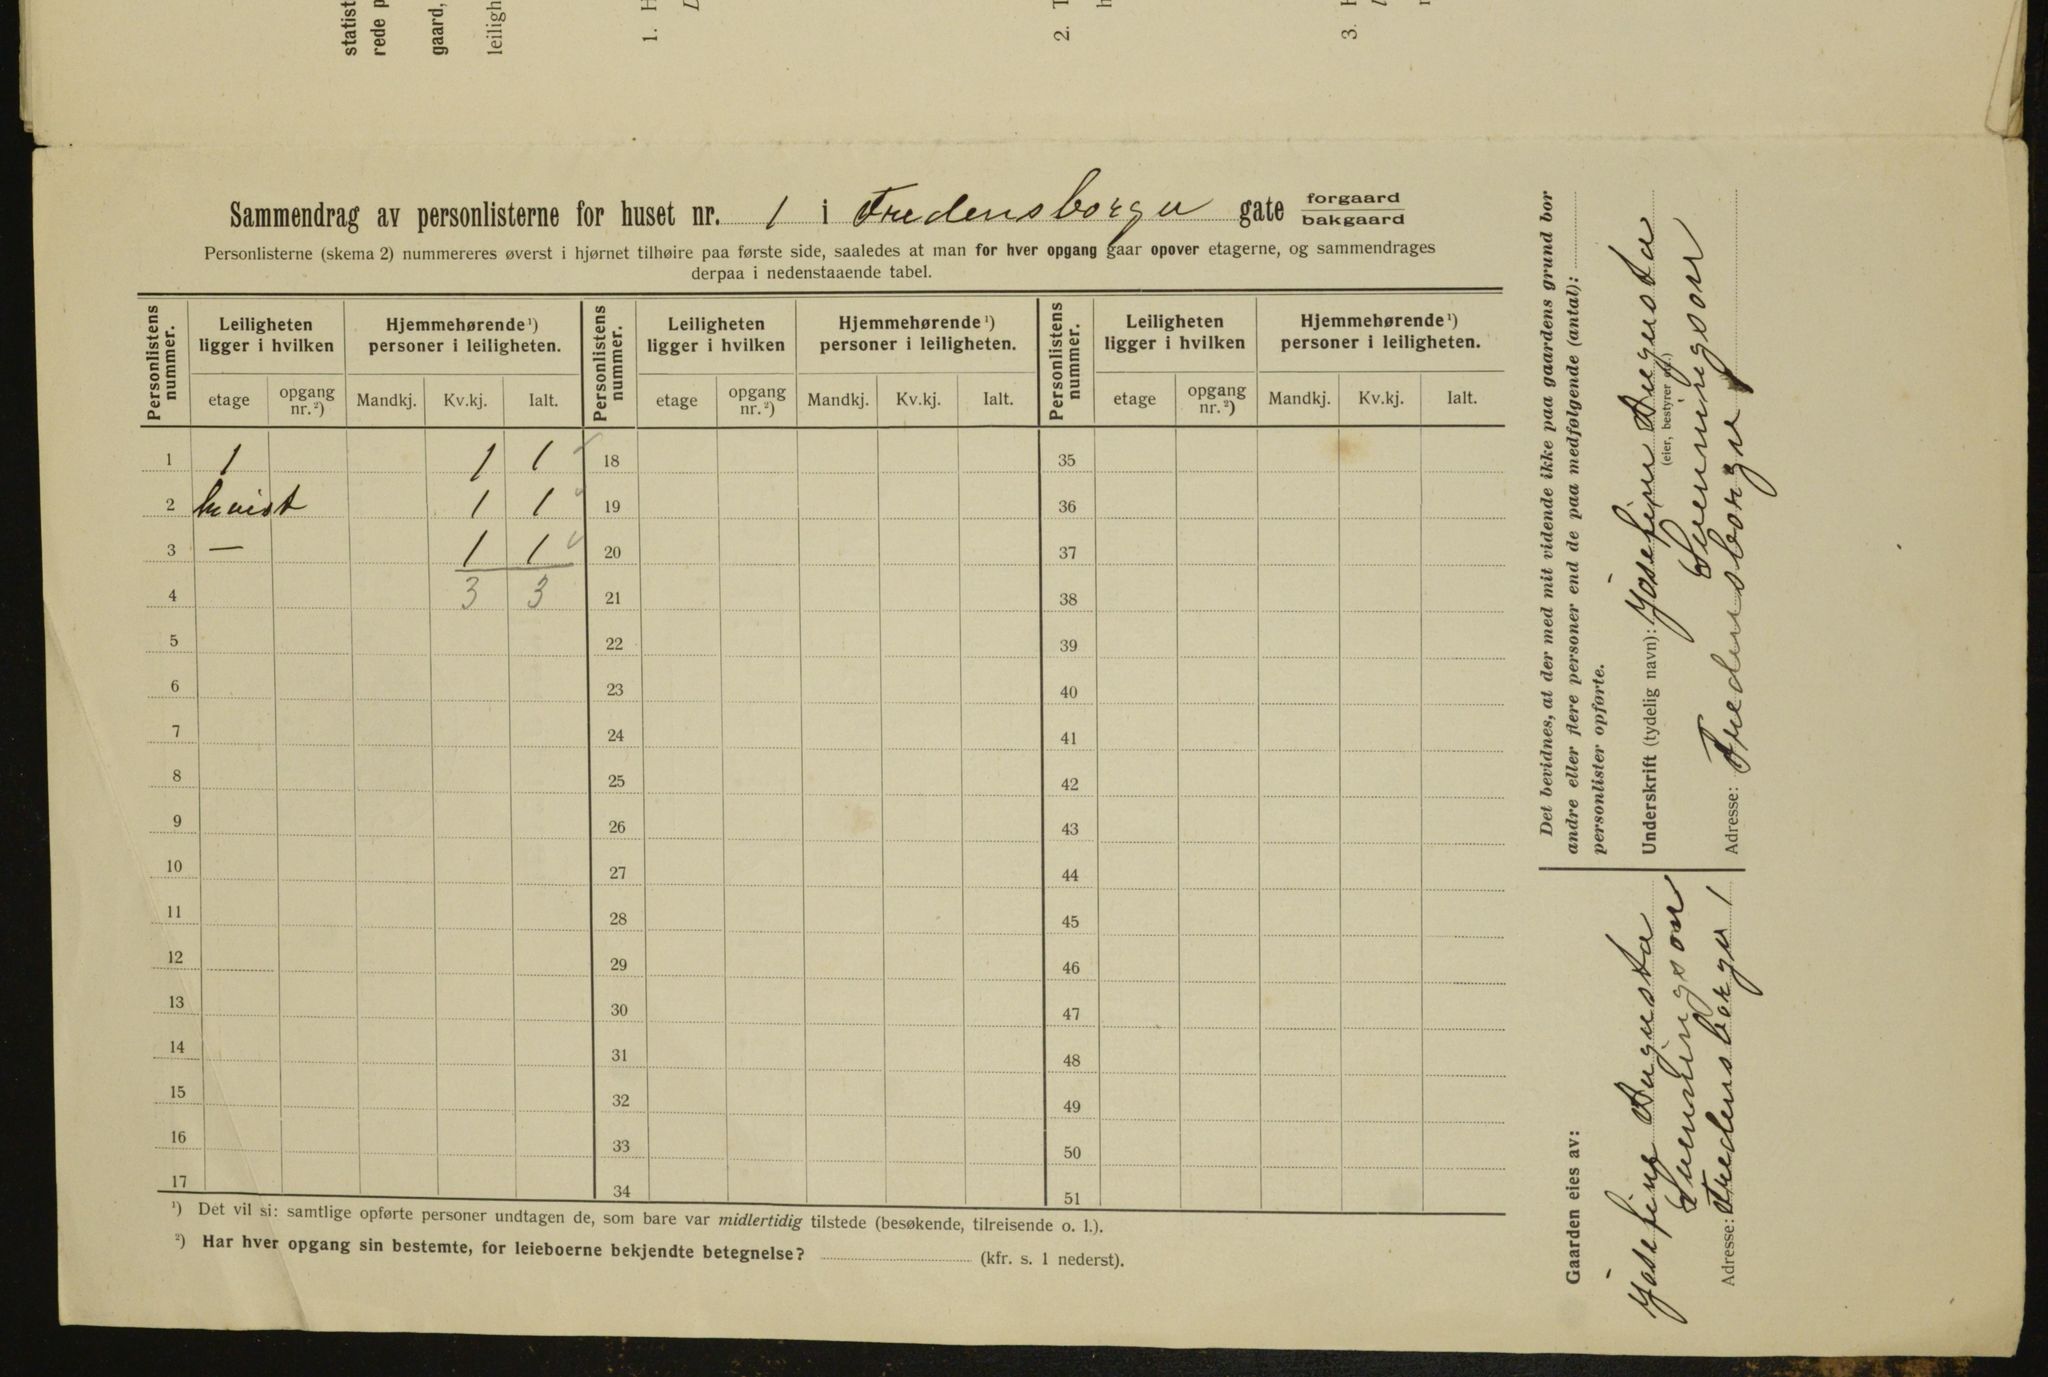 statist
rede p
gaard,
leiligh
1. H
2. T
3. H
Sammendrag av personlisterne for huset nr. 1 i Fredensborgv gate forgaard bakgaard
Personlisterne (skema 2) nummereres øverst i hjørnet tilhøire paa første side, saaledes at man for hver opgang gaar opover etagerne, og sammendrages
derpaa i nedenstaaende tabel.
Personlistens nummer. Leiligheten ligger i hvilken Hjemmehørende ¹) personer i leiligheten. Personlistens nummer. Leiligheten ligger i hvilken Hjemmehørende ¹) personer i leiligheten. Personlistens nummer. Leiligheten ligger i hvilken Hjemmehørende ¹) personer i leiligheten.
etage opgang nr. ²) Mandkj. Kv.kj. Ialt. etage opgang nr. ²) Mandkj. Kv.kj. Ialt. etage opgang nr. ²) Mandkj. Kv.kj. Ialt.
1 1 1 1 18 35
2 kvist 1 1 19 36
3 — 1 1 20 37
4 3 3 21 38
5 22 39
6 23 40
7 24 41
8 25 42
9 26 43
10 27 44
11 28 45
12 29 46
13 30 47
14 31 48
15 32 49
16 33 50
17 34 51
¹) Det vil si: samtlige opførte personer undtagen de, som bare var midlertidig tilstede (besøkende, tilreisende o. l.).
²) Har hver opgang sin bestemte, for leieboerne bekjendte betegnelse? (kfr. s. 1 nederst).
Det bevidnes, at der med mit vidende ikke paa gaardens grund bor
andre eller flere personer end de paa medfølgende (antal):
personlister opførte.
Underskrift (tydelig navn): Josefine Augusta
(eier, bestyrer etc.)
Henningsen
Adresse: Fredensborgv 1
Gaarden eies av:
Josefine Augusta
Henningsen
Adresse: Fredensborgv 1